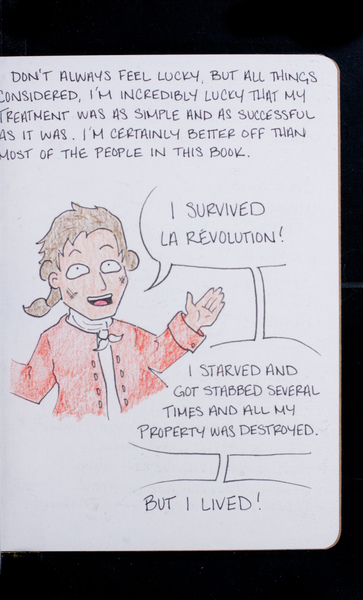 DON'T ALWAYS FEEL LUCKY, BUT ALL THINGS
CONSIDERED, I'M INCREDIBLY LUCKY THAT MY
TREATMENT WAS AS SIMPLE AND AS SUCCESSFUL
AS IT WAS. I'M CERTAINLY BETTER OFF THAN
MOST OF THE PEOPLE IN THIS BOOK.
I SURVIVED
LA RÉVOLUTION!
I STARVED AND
GOT STABBED SEVERAL
TIMES AND ALL MY
PROPERTY WAS DESTROYED.
BUT I LIVED!